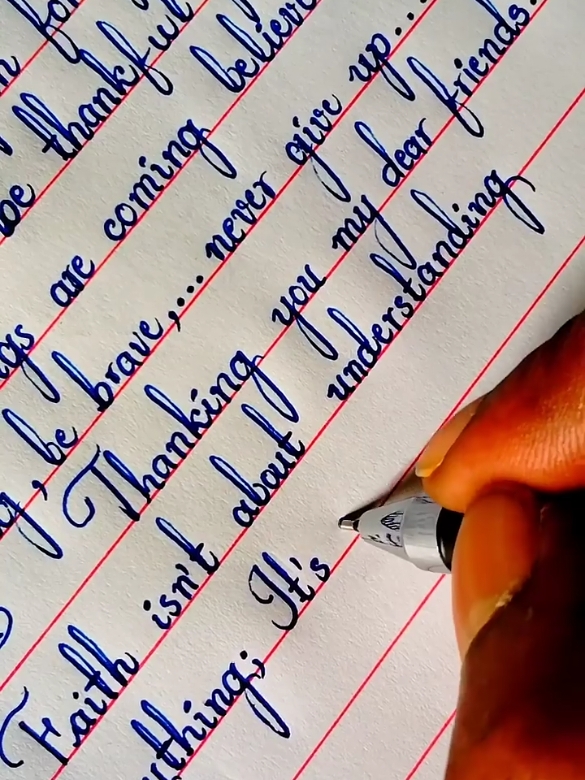 be thankful
are coming believe
be brave,... never give up...
Thanking you my dear friends.
Faith isn't about understanding
It's